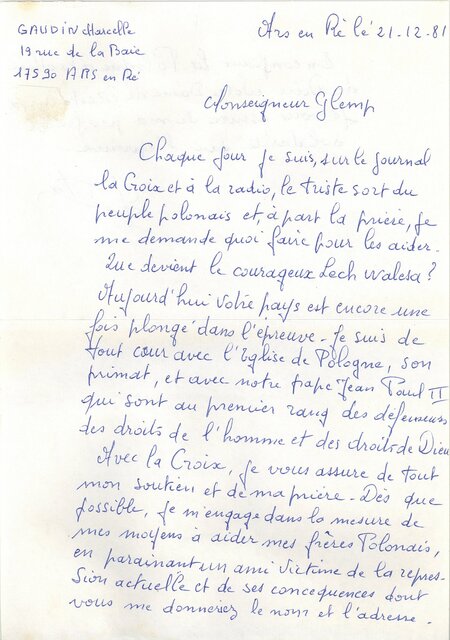 GAUDIN Marcelle
19 rue de la Baie
17590 ARS en Ré
Ars en Ré lé 21-12-81
Monseigneur Glemp
Chaque jour je suis, sur le journal
la Croix et à la radio, le triste sort du
peuple polonais et, à part la prière, je
me demande quoi faire pour les aider.
Que devient le courageux Lech Walesa?
Aujourd'hui votre pays est encore une
fois plongé dans l'épreuve. Je suis de
tout cour avec l'Eglise de Pologne, son
primat, et avec notre pape Jean Paul II
qui sont au premier rang des défenseurs
des droits de l'homme et des droits de Dieu
Avec la Croix, je vous assure de tout
mon soutien et de ma prière. Dès que
possible, je m'engage dans la mesure de
mes moyens à aider mes frères Polonais,
en parainant un ami victime de la repres-
sion actuelle et de ses concequences dont
vous me donneriez le nom et l'adresse.